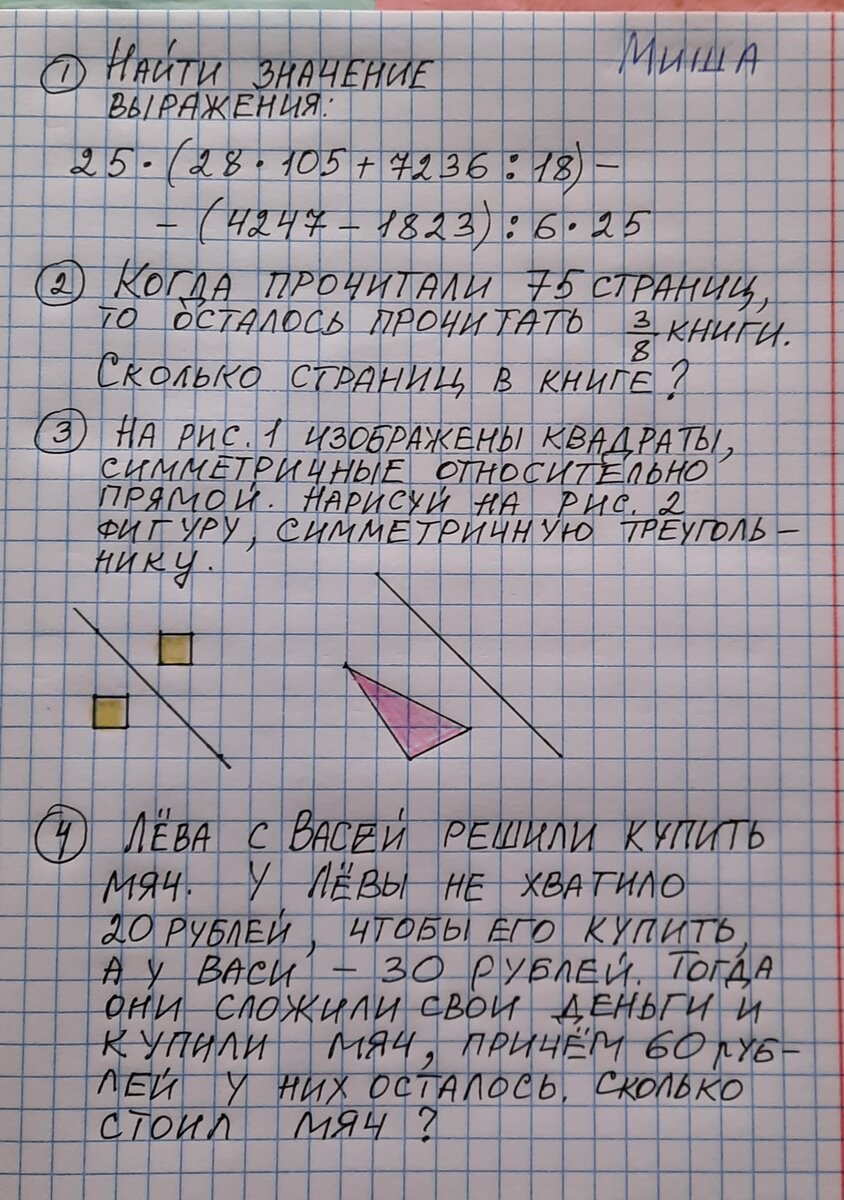 Миша
① Найти значение
выражения:
25·(28·105+7236:18)–
–(4247–1823):6·25
② Когда прочитали 75 страниц,
то осталось прочитать 3/8 книги.
Сколько страниц в книге?
③ На рис.1 изображены квадраты,
симметричные относительно
прямой. Нарисуй на рис. 2
фигуру, симметричную треуголь–
нику.
④ Лёва с Васей решили купить
мяч. У Лёвы не хватило
20 рублей, чтобы его купить,
а у Васи – 30 рублей. Тогда
они сложили свои деньги и
купили мяч, причём 60 руб–
лей у них осталось. Сколько
стоил мяч?